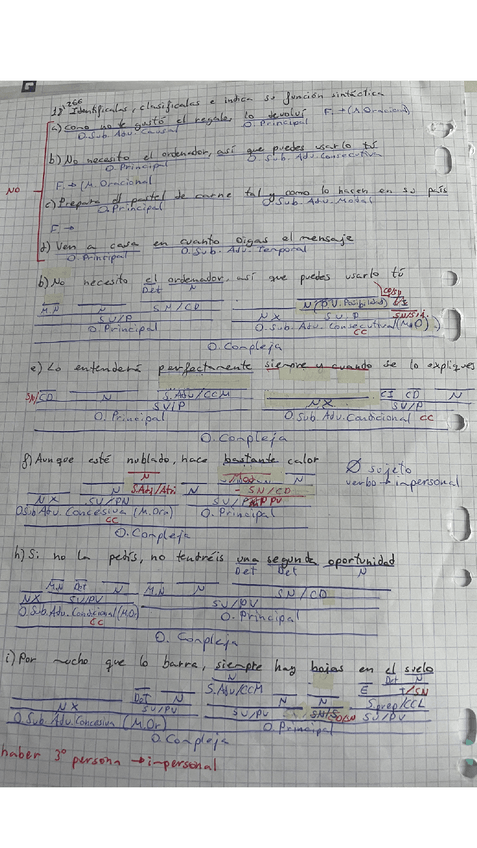 19. 266 Identifícalas, clasifícalas e indica su función sintáctica
a) Como no te gustó el regalo, lo devolví F. → (M. Oracional)
O. Sub. Adv. Causal O. Principal
b) No necesito el ordenador, así que puedes usarlo tú
O. Principal O. Sub. Adv. Consecutiva
NO
F. → (M. Oracional
c) Prepara el pastel de carne tal y como lo hacen en su país
O. Principal O. Sub. Adv. Modal
F. →
d) Ven a casa en cuanto oigas el mensaje
O. Principal O. Sub. Adv. Temporal
b) No necesito el ordenador, así que puedes usarlo tú
Det N CD/SD
M.N N SN/CD N (P.V. Posibilidad)
SV/P NX SV/P SN/Suj.
O. Principal O. Sub. Adv. Consecutiva (M.O)
CC
O. Compleja
e) Lo entenderá perfectamente siempre y cuando se lo expliques
SN/CD N S.Adv/CCM NX CI CD N
SV/P SV/P
O. Principal O. Sub. Adv. Condicional CC
O. Compleja
f) Aunque esté nublado, hace bastante calor
Ø sujeto
verbo → impersonal
N N
N S.Adj/Atri N SN/CD
NX SV/PN SV/P PV
O. Sub. Adv. Concesiva (M. Orn) O. Principal
CC
O. Compleja
h) Si no la pedís, no tendréis una segunda oportunidad
Det Det N
M.N Det N M.N N SN/CD
NX SV/PV SV/PV
O. Sub. Adv. Condicional (M.O) O. Principal
CC
O. Compleja
i) Por mucho que lo barra, siempre hay hojas en el suelo
N Det N
S.Adv/CCM N N E T/SN
Det N S.prep/CCL
NX SV/PV SV/PV SV/PV
O. Sub. Adv. Concesiva (M. Or) O. Principal
O. Compleja
haber 3º persona → impersonal